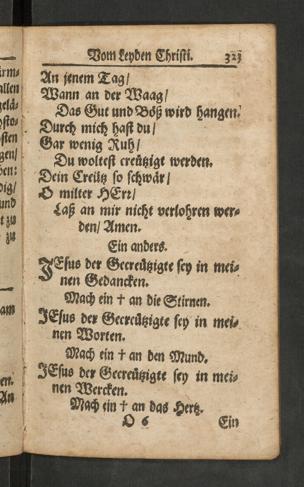 Vom Leyden Christi. 323
An jenem Tag/
Wann an der Waag/
Das Gut und Böß wird hangen.
Durch mich hast du/
Gar wenig Ruh/
Du woltest creützigt werden.
Dein Creütz so schwär/
O milter HErr/
Laß an mir nicht verlohren wer-
den/ Amen.
Ein anders.
JEsus der Gecreützigte sey in mei-
nen Gedancken.
Mach ein † an die Stirnen.
JEsus der Gecreützigte sey in mei-
nen Worten.
Mach ein † an den Mund.
JEsus der Gecreützigte sey in mei-
nen Wercken.
Mach ein † an das Hertz.
O 6 Ein